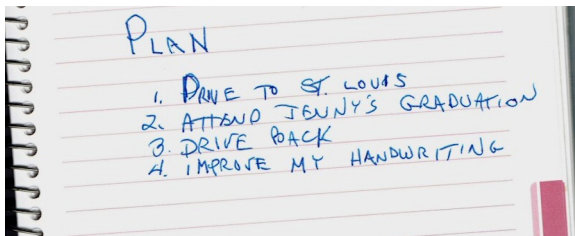 PLAN
1. DRIVE TO ST. LOUIS
2. ATTEND JENNY'S GRADUATION
3. DRIVE BACK
4. IMPROVE MY HANDWRITING